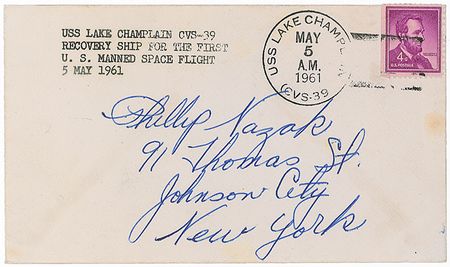 USS LAKE CHAMPLAIN CVS-39
RECOVERY SHIP FOR THE FIRST
U. S. MANNED SPACE FLIGHT
5 MAY 1961
USS LAKE CHAMPL
MAY
5
A.M.
1961
(CVS-39
4¢
U.S. POSTAGE
Phillip Nazak
91 Thomas St.
Johnson City
New York